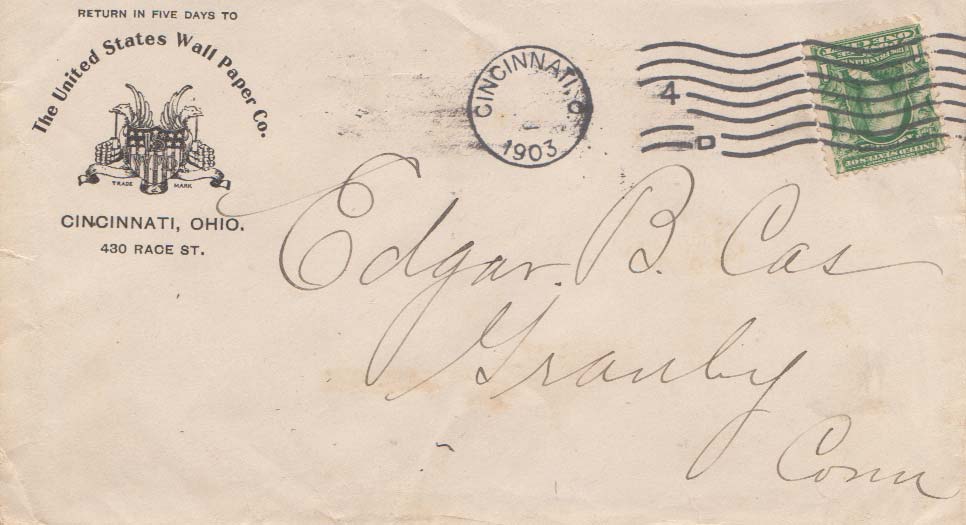 RETURN IN FIVE DAYS TO
The United States Wall Paper Co.
TRADE MARK
CINCINNATI, OHIO.
430 RACE ST.
CINCINNATI, O.
1903
4
D
Edgar B. Cas
Granby
Conn